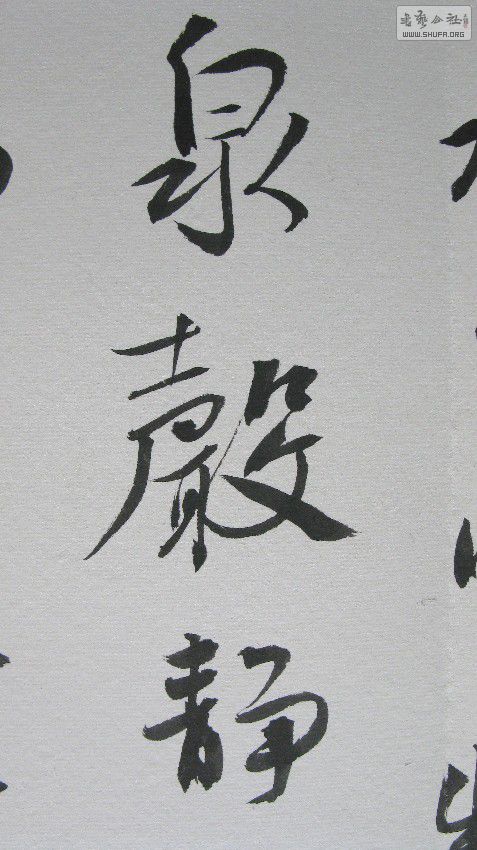 泉聲静
书艺公社
WWW.SHUFA.ORG